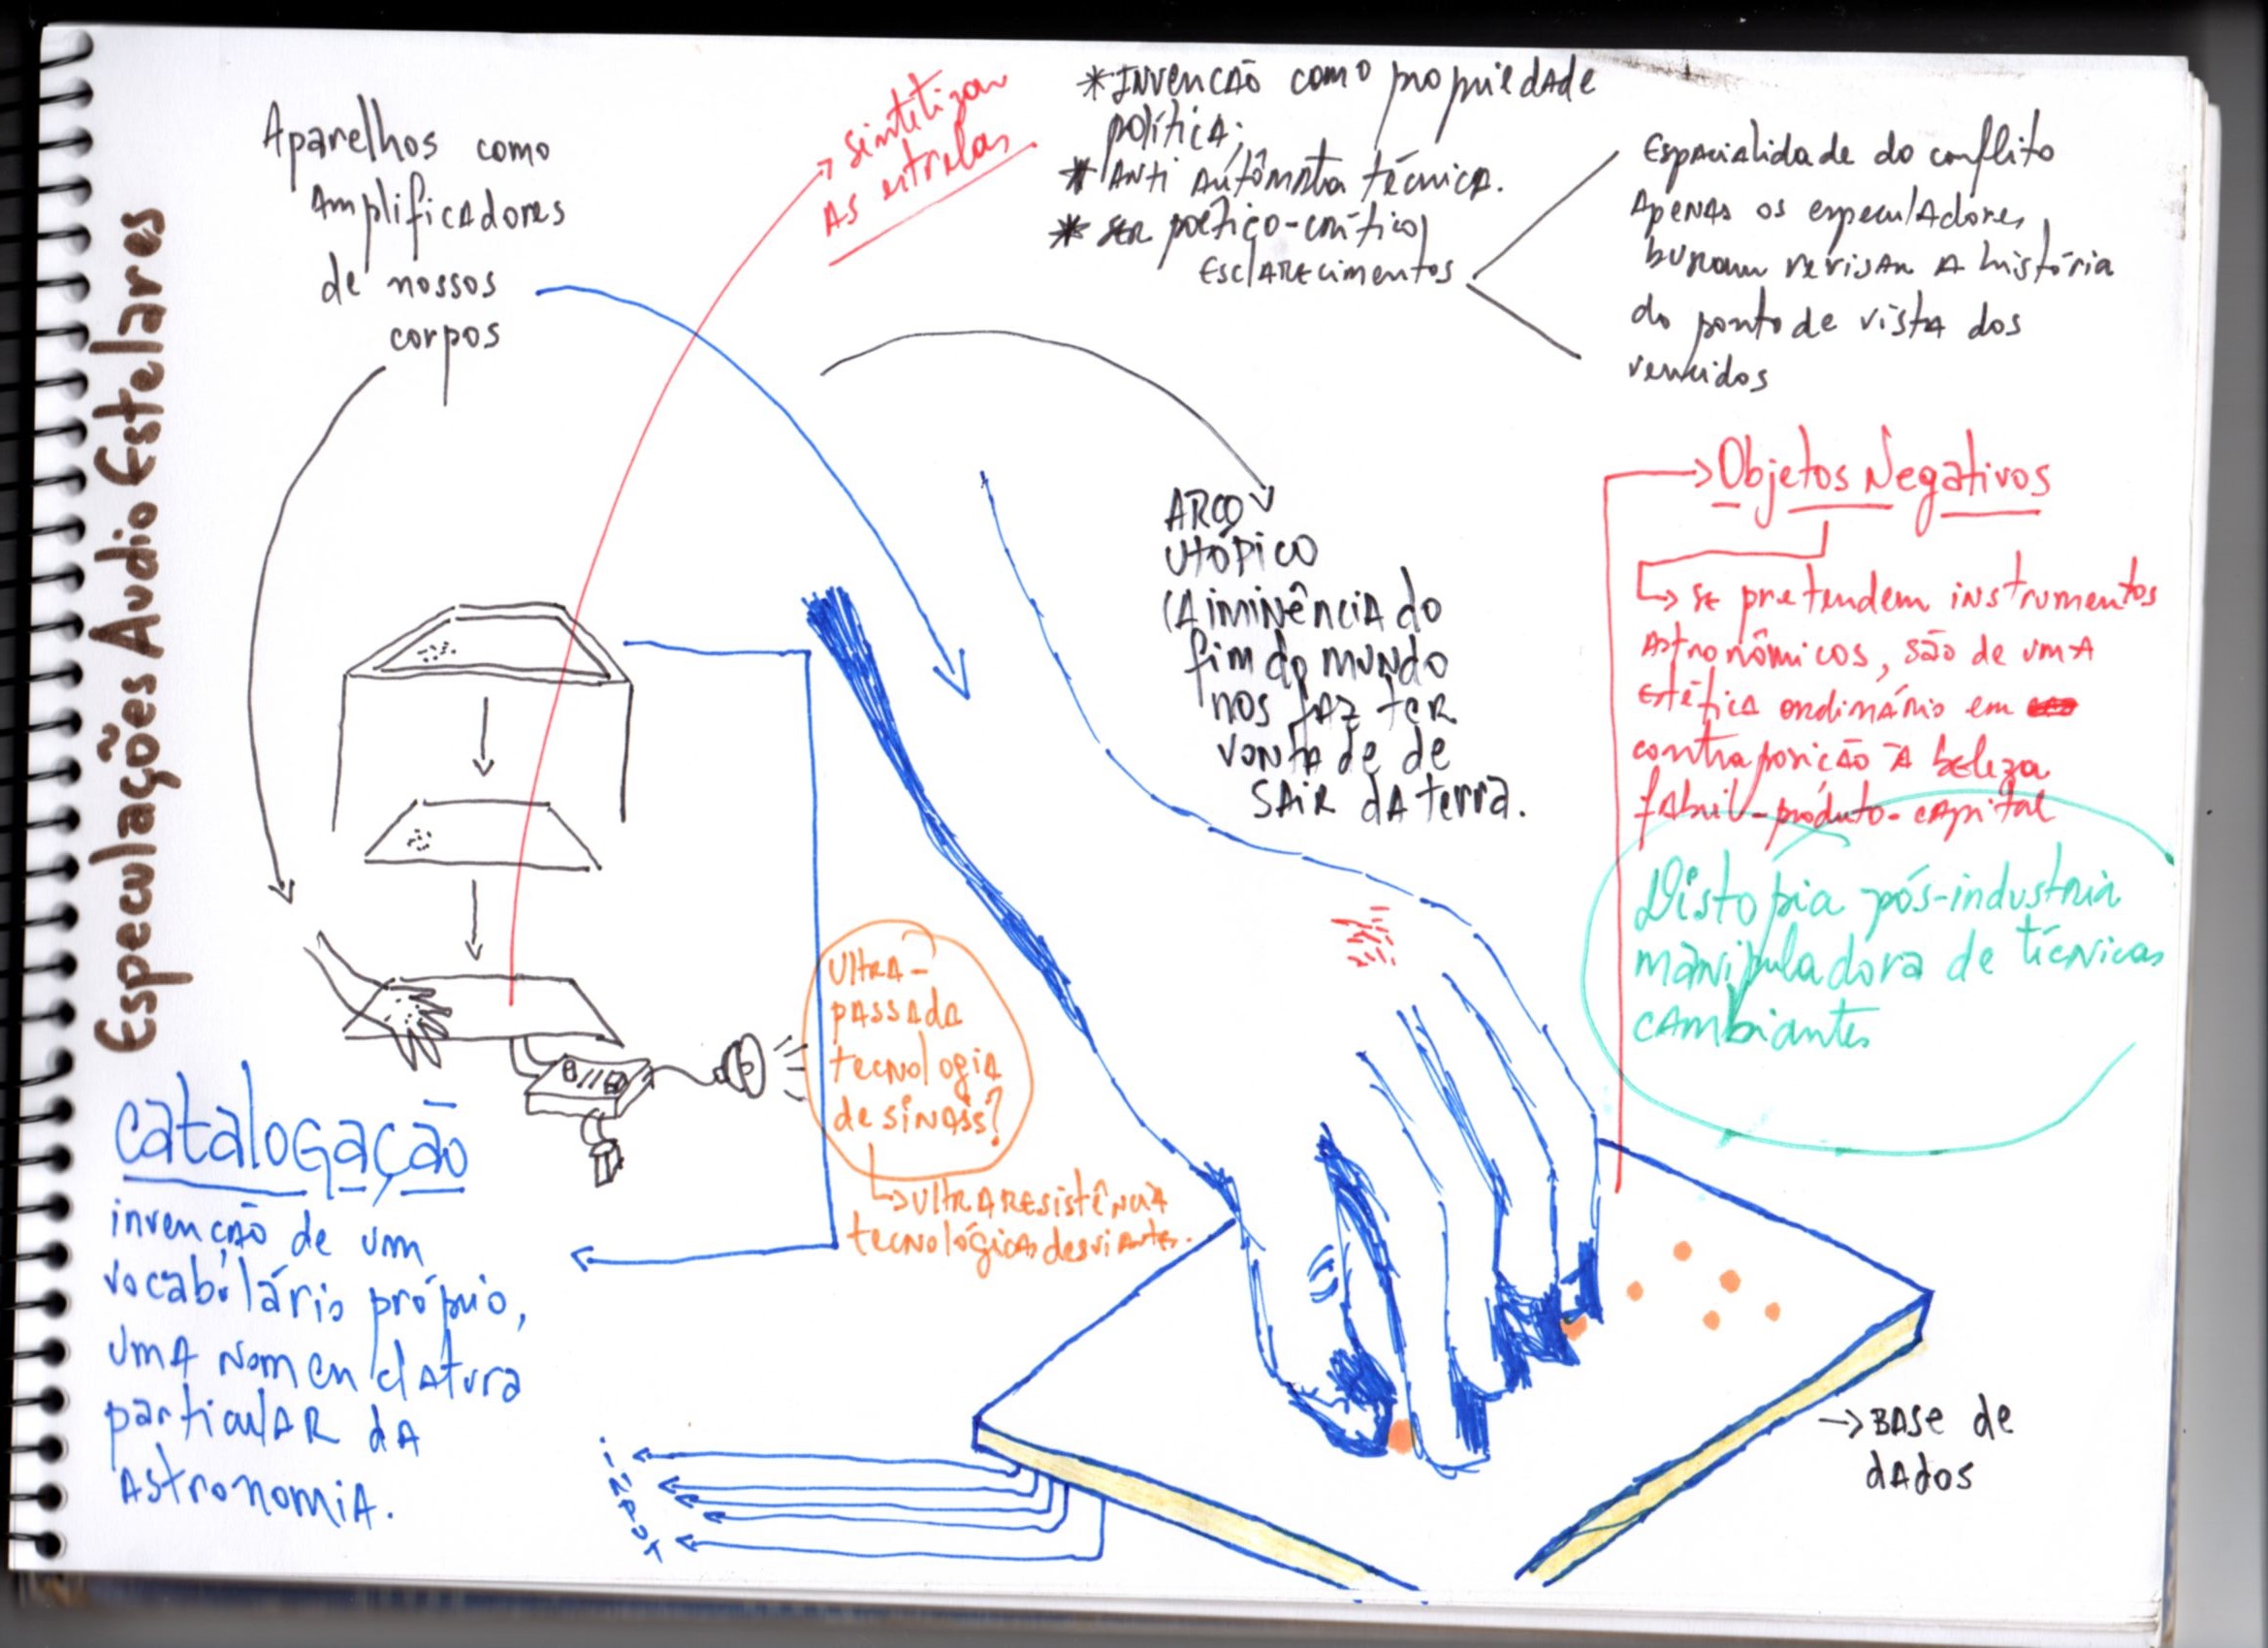 Especulações Audio Estelares
Aparelhos como
Amplificadores
de nossos
corpos
sintetizar
As estrelas
*INVENCÃO como propriedade
política;
*ANTI AUTÔMATA técnica.
* SER poético-crítico
ESCLARECIMENTOS
Espacialidade do conflito
Apenas os especuladores
buscam revisar A história
do ponto de vista dos
vencidos
ARCO
UTÓPICO
(A iminência do
fim do mundo
nos faz ter
vontade de
SAIR dA terra.
Objetos Negativos
se pretendem instrumentos
Astronômicos, são de uma
estética ordinário em
contraposicão à beleza
fabril-produto-capital
Distopia pós-industria
manipuladora de técnicas
cambiantes
Ultra-
passada
tecnologia
de sinais?
ultraresistência
tecnológicas desviantes.
catalogação
invencão de um
vocabulário próprio,
uma nomenclatura
particular da
Astronomia.
input
BASE de
dados